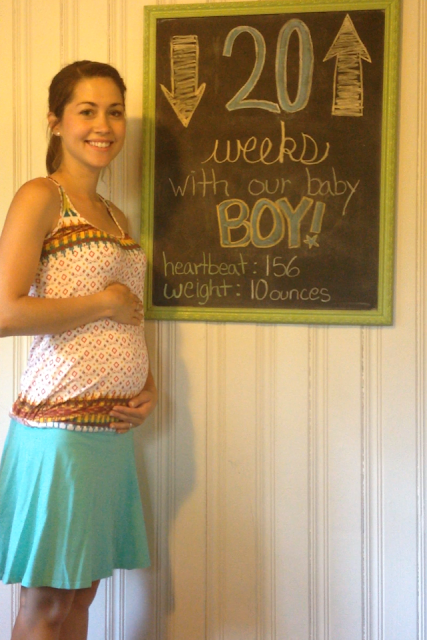 20
weeks
with our baby
BOY!
heartbeat: 156
weight: 10 ounces